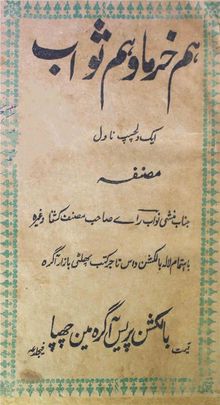 ہم خرما و ہم ثواب
ایک دلچسپ ناول
مصنفہ
جناب منشی نواب رائے صاحب مصنف کشنا وغیرہ
باہتمام لالہ بالکشن داس تاجر کتب پھلٹی بازار آگرہ
بالکشن پریس آگرہ مین چھپا
قیمت